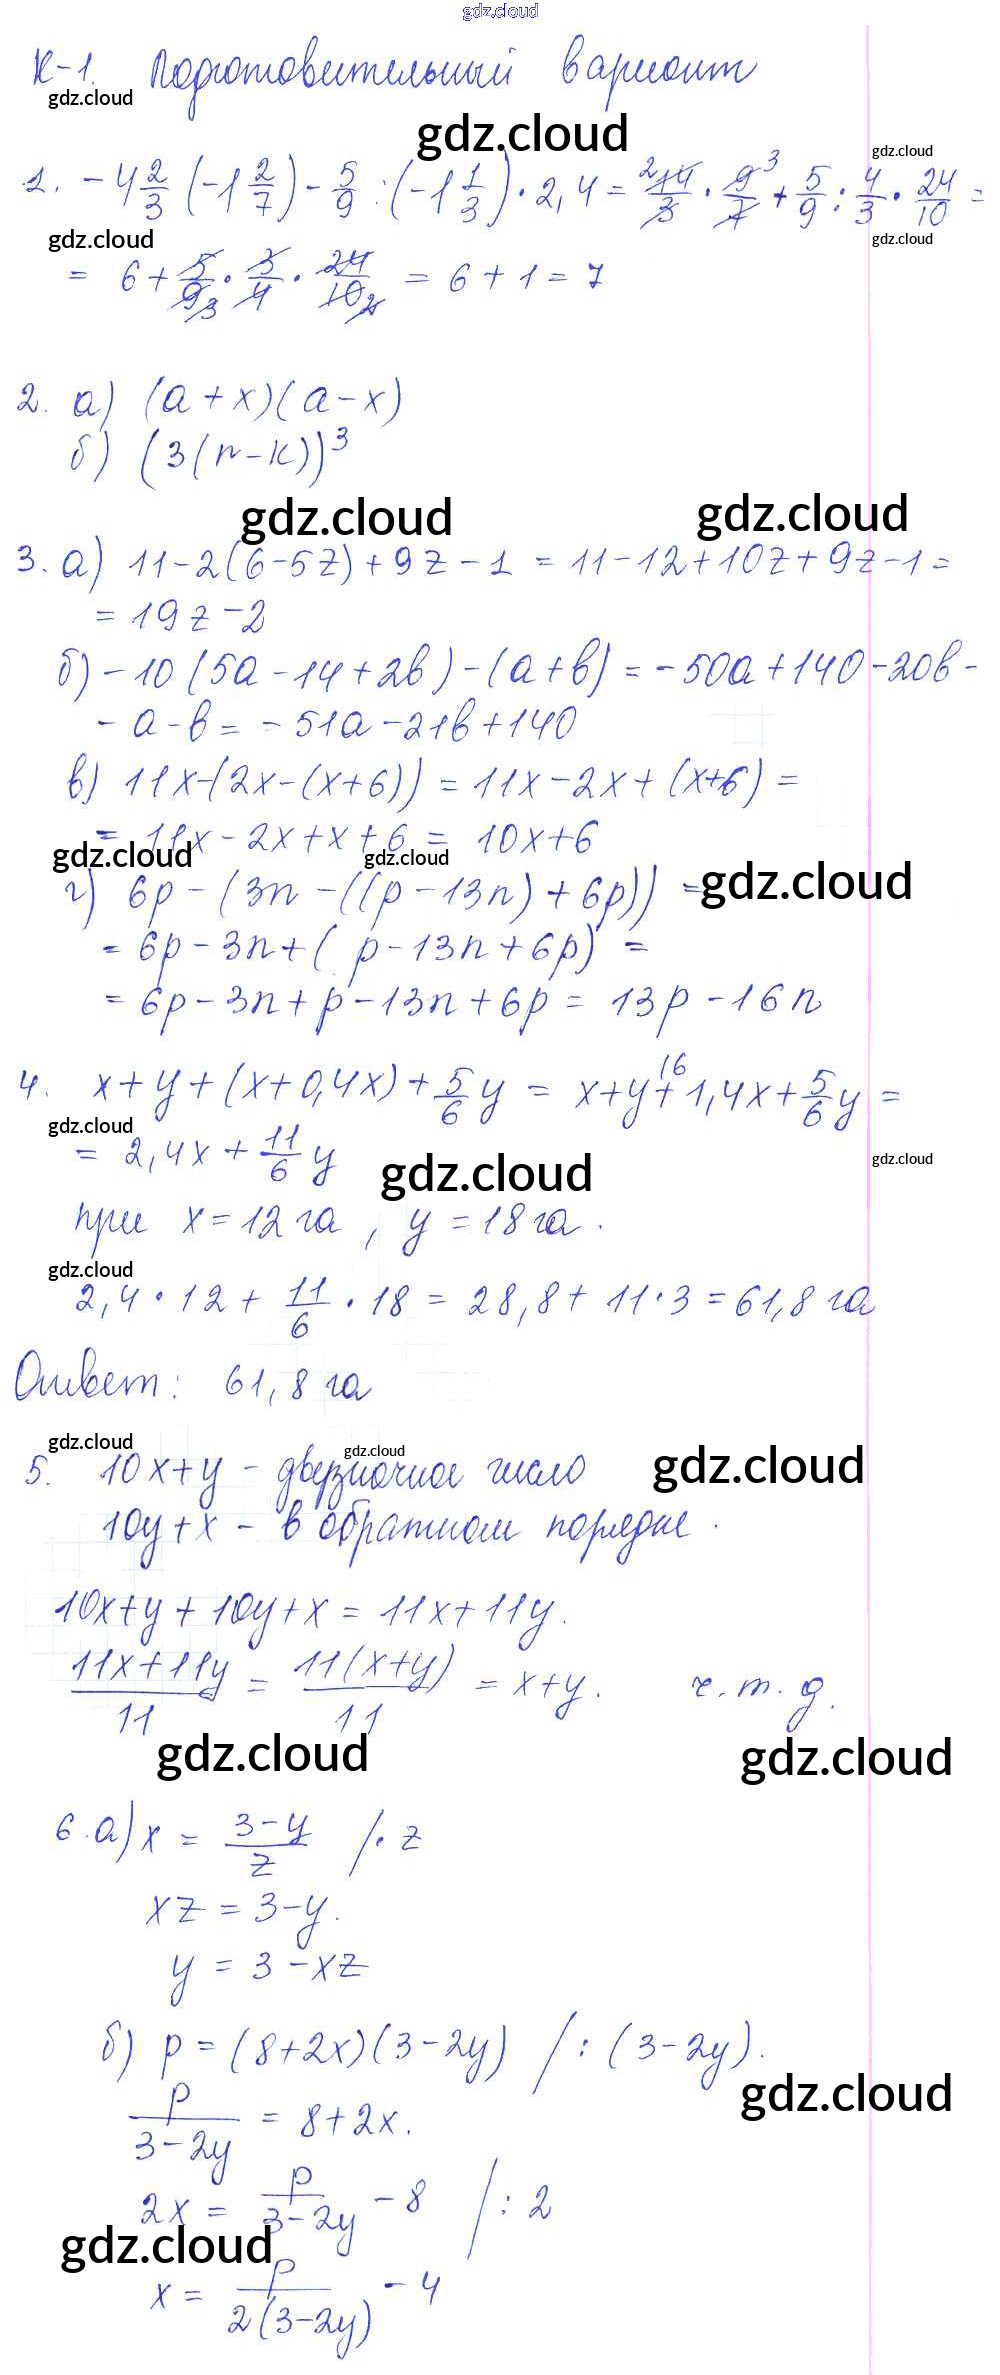 gdz.cloud
К-1. Подготовительный вариант
gdz.cloud
gdz.cloud
gdz.cloud
1. -4 2/3 (-1 2/7) - 5/9 : (-1 1/3) · 2,4 = ²14/3 · 9³/7 + 5/9 : 4/3 · 24/10 =
gdz.cloud
gdz.cloud
= 6 + 5/9₃ · 3/4 · 24/10₂ = 6 + 1 = 7
2. а) (a + x)(a - x)
б) (3(n - k))³
gdz.cloud
gdz.cloud
3. а) 11 - 2(6 - 5z) + 9z - 1 = 11 - 12 + 10z + 9z - 1 =
= 19z - 2
б) -10(5a - 14 + 2b) - (a + b) = -50a + 140 - 20b -
- a - b = -51a - 21b + 140
в) 11x - (2x - (x + 6)) = 11x - 2x + (x + 6) =
= 11x - 2x + x + 6 = 10x + 6
gdz.cloud
gdz.cloud
gdz.cloud
г) 6p - (3n - ((p - 13n) + 6p)) =
= 6p - 3n + (p - 13n + 6p) =
= 6p - 3n + p - 13n + 6p = 13p - 16n
4. x + y + (x + 0,4x) + 5/6 y = x + y + 1,4x + 5/6 y =
gdz.cloud
= 2,4x + 11/6 y
gdz.cloud
gdz.cloud
при x = 12 га, y = 18 га.
gdz.cloud
2,4 · 12 + 11/6 · 18 = 28,8 + 11 · 3 = 61,8 га
Ответ: 61,8 га
gdz.cloud
gdz.cloud
gdz.cloud
5. 10x + y - двузначное число
10y + x - в обратном порядке.
10x + y + 10y + x = 11x + 11y.
11x + 11y/11 = 11(x + y)/11 = x + y. ч.т.д.
gdz.cloud
gdz.cloud
6. а) x = 3 - y/z / · z
xz = 3 - y.
y = 3 - xz
б) p = (8 + 2x)(3 - 2y) / : (3 - 2y).
gdz.cloud
p/3 - 2y = 8 + 2x.
2x = p/3 - 2y - 8 / : 2
gdz.cloud
x = p/2(3 - 2y) - 4